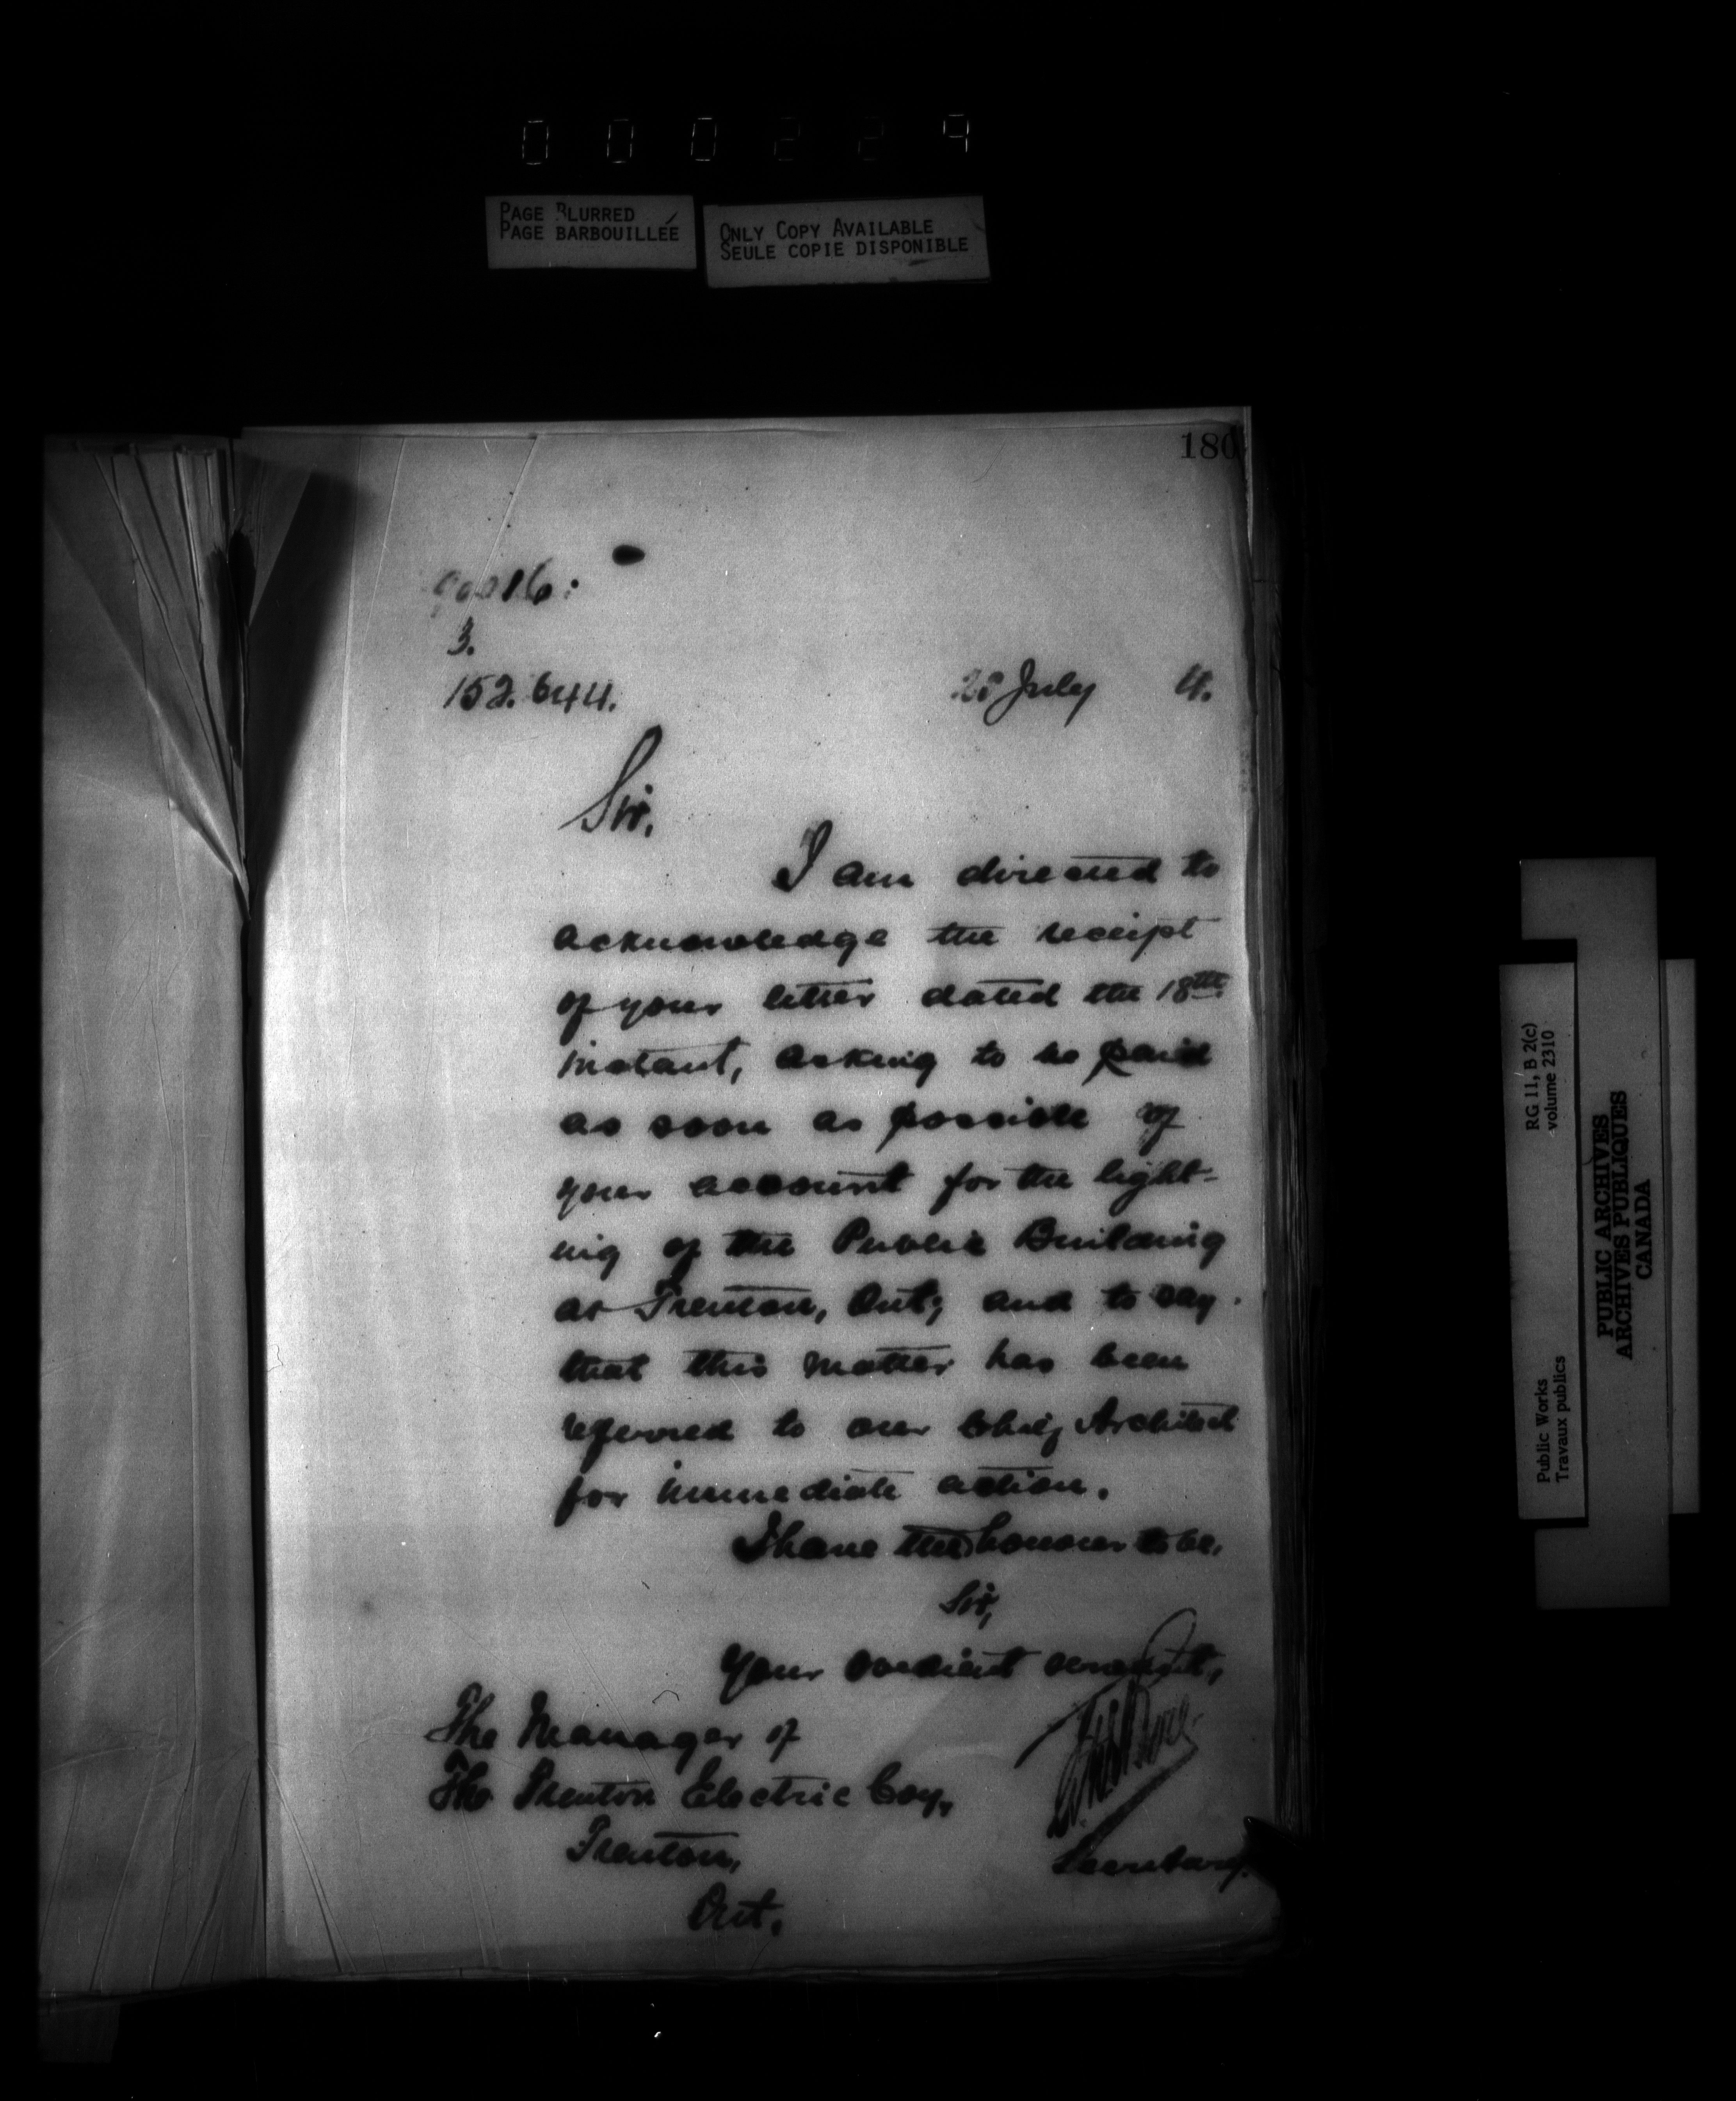 0 0 0 2 2 9
PAGE BLURRED
PAGE BARBOUILLÉE
ONLY COPY AVAILABLE
SEULE COPIE DISPONIBLE
180
3.
152.644.
July 4.
Sir,
I am directed to
acknowledge the receipt
of your letter dated the 18th
instant, asking to be paid
as soon as possible of
your account for the light-
ing of the Public Building
at Trenton, Ont; and to say
that this matter has been
referred to our Chief Architect
for immediate action.
I have the honour to be,
Sir,
Your obedient servant,
The Manager of
The Trenton Electric Coy,
Trenton,
Ont.
Secretary.
RG 11, B 2(c)
volume 2310
Public Works
Travaux publics
PUBLIC ARCHIVES
ARCHIVES PUBLIQUES
CANADA